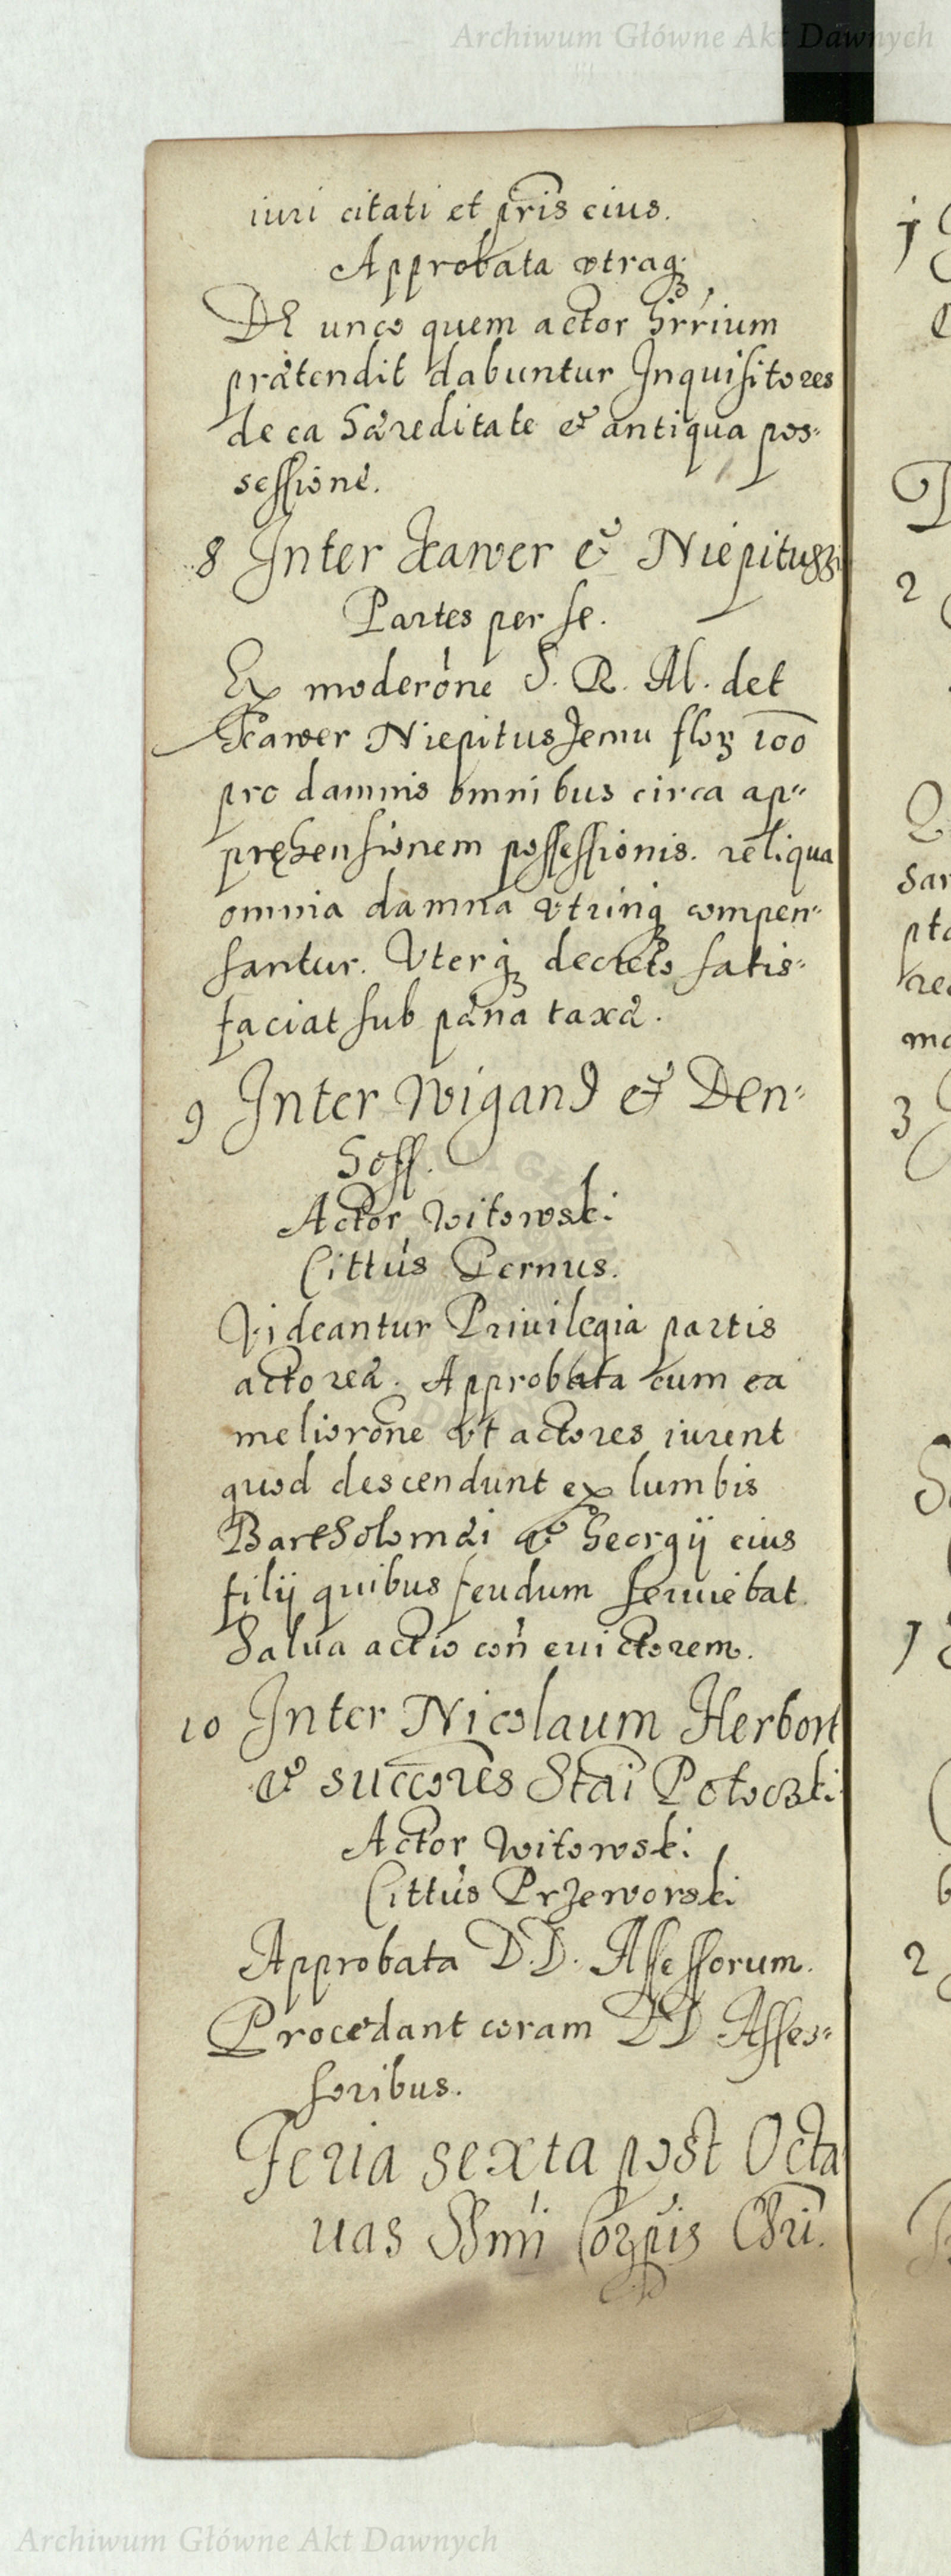 Archiwum Główne Akt Dawnych
iuri citati et pris eius.
Approbata vtraq;
De unco quem actor hrrium
prætendit dabuntur Inquisitores
de ea hæreditate & antiqua pos-
sessione.
8 Inter Xawer & Niepituszi
Partes per se.
Ex moderone S. R. M. det
Xawer Niepitusjemu flor 100
pro damnis omnibus circa ap-
pręhensionem possessionis. reliqua
omnia damna vtrinq compen-
santur. Vterq decreto satis-
faciat sub pæna taxæ.
9 Inter Wigand & Den-
hoff.
Actor Witowski
Cittus Pernus.
Videantur Priuilegia partis
actoreæ. Approbata cum ea
meliorone vt actores iurent
quod descendunt ex lumbis
Bartholomæi & Georgij eius
filij quibus feudum seruiebat.
Salua actio con euictorem.
10 Inter Nicolaum Herbort
& succores Stai Potoczki
Actor Witowski
Cittus Przeworski
Approbata D.D. Assessorum.
Procedant coram DD Asses-
soribus.
Feria sexta post Octa
uas SSmi Corpis Chri.
Archiwum Główne Akt Dawnych